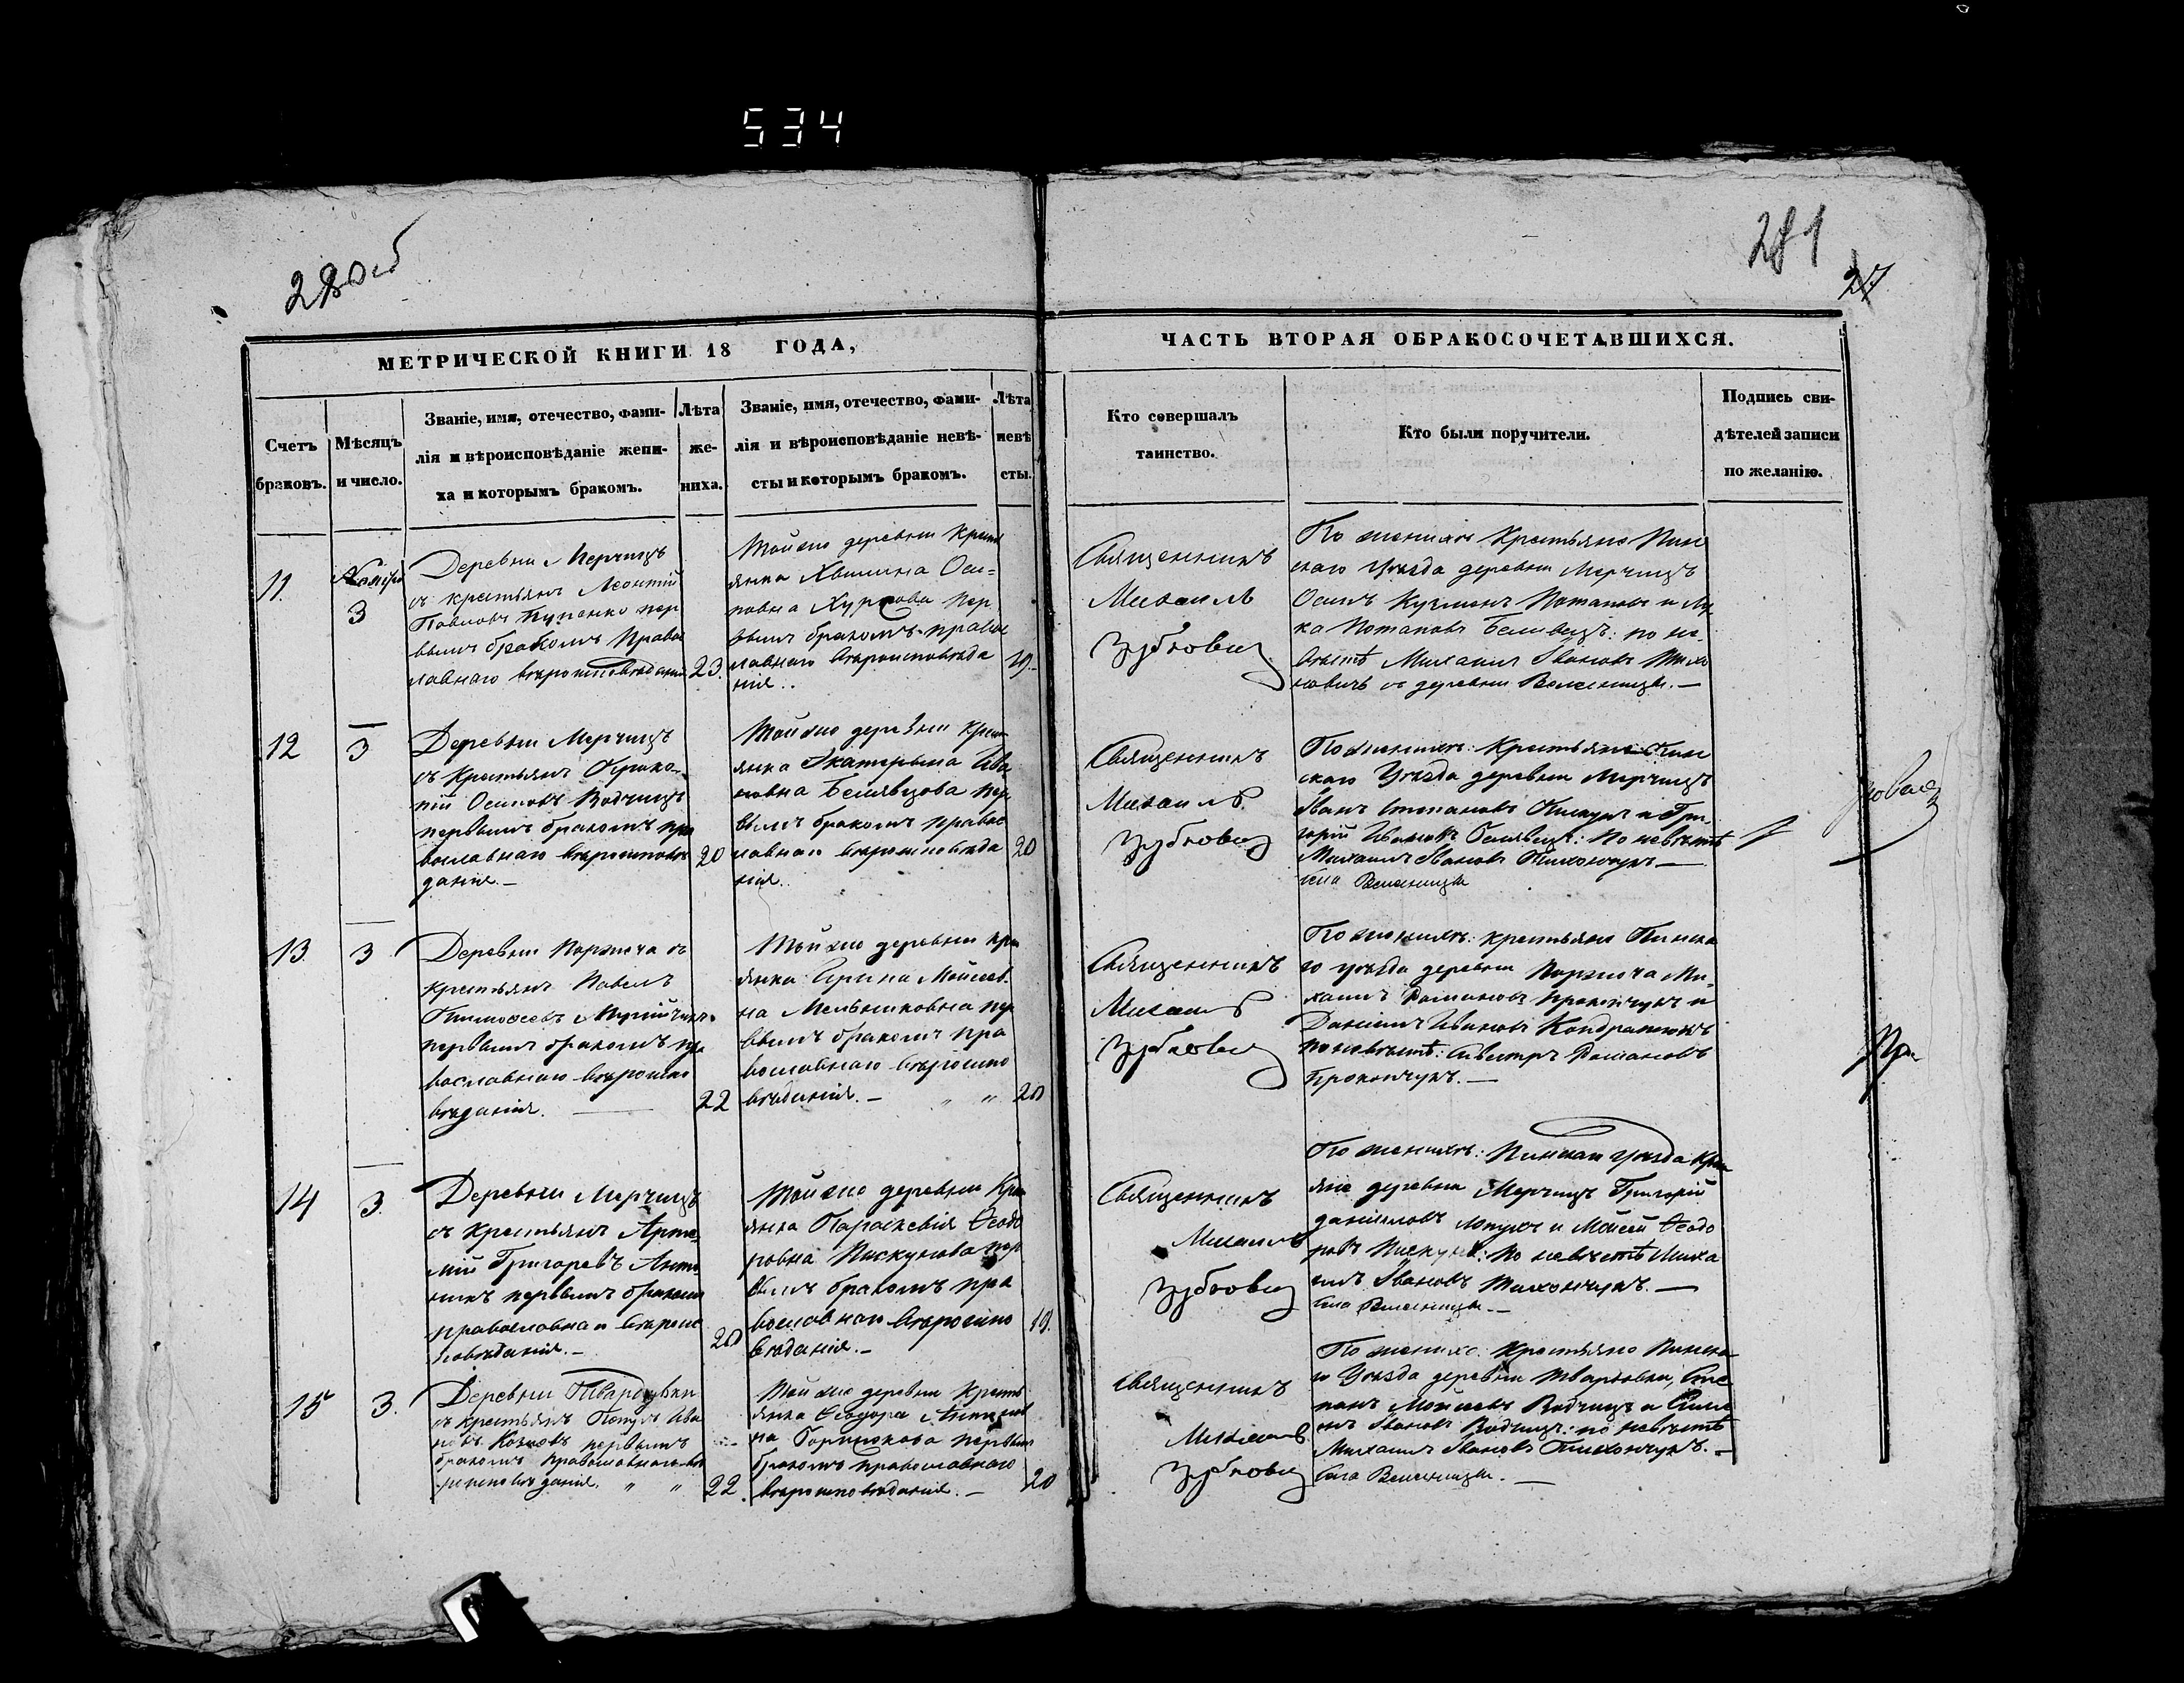 534
280 об
281
27
МЕТРИЧЕСКОЙ КНИГИ 18 ГОДА,
ЧАСТЬ ВТОРАЯ О БРАКОСОЧЕТАВШИХСЯ.
Счетъ браковъ.
Мѣсяцъ и число.
Званіе, имя, отечество, фами-
лія и вѣроисповѣданіе жени-
ха и которымъ бракомъ.
Лѣта
же-
ниха.
Званіе, имя, отечество, фами-
лія и вѣроисповѣданіе невѣ-
сты и которымъ бракомъ.
Лѣта
невѣ
сты.
Кто совершалъ
таинство.
Кто были поручители.
Подпись сви-
дѣтелей записи
по желанію.
11.
3
Деревни Мерчицъ
съ крестьянъ Леонтій
Павловъ пер
вымъ бракомъ Правос
лавнаго вѣроисповѣданія
23.
Той же деревни Крест
янка Оси=
повна пер
вымъ бракомъ правос
лавнаго вѣроисповѣда
нія..
19.
Священникъ
Михаилъ
Зубковичъ
По женихѣ Крестьяне Пин
скаго Уѣзда деревни Мерчицъ
Осипъ Потаповъ и Лу
ка Потаповъ по не
вѣстѣ Михаилъ Ивановъ Тихо
новичъ съ деревни Велесницы.—
12
3
Деревни Мерчицъ
съ Крестьянъ
Осиповъ Водчицъ
первымъ бракомъ пра
вославнаго вѣроисповѣ
данія.—
20
Той же деревни Крест
янка Екатерина Ива
новна Белявцова пер
вымъ бракомъ правос
лавнаго вѣроисповѣда
нія.
20
Священникъ
Михаилъ
Зубковичъ
По женихѣ: Крестьяне Пин
скаго Уѣзда деревни Мерчицъ
Иванъ Степановъ Пискунъ и Гри
горій Ивановъ Белявецъ: По невѣстѣ
Михаилъ Ивановъ Тихончукъ—
села Велесницы
13.
3
Деревни Поржеча съ
крестьянъ Павелъ
Тимофеевъ
первымъ бракомъ пра
вославнаго вѣроиспо
вѣданія.
22
Той же деревни кре
янка Ирина Моисеев
на Мельниковна пер
вымъ бракомъ пра
вославнаго вѣроиспо
вѣданія.— " "
20
Священникъ
Михаилъ
Зубковичъ
По женихѣ: крестьяне Пинска
го уѣзда деревни Поржеча Ми
хаилъ Романовъ Прокопчукъ и
Даніилъ Ивановъ Кондратюкъ
по невѣстѣ: Сивестръ Романовъ
Прокопчукъ.—
14
3.
Деревни Мерчицъ
съ Крестьянъ Арте
мій Григоревъ
первымъ бракомъ
православнаго вѣроис
повѣданія.—
20
Той же деревни Кре
янка Параскевія Ѳеодо
ровна Пискунова пер
вымъ бракомъ пра
вославнаго вѣроиспо
вѣданія.—
19.
Священникъ
Михаилъ
Зубковичъ
По женихѣ: Пинскаго Уѣзда Крест
яне деревни Мерчицъ Григорій
Даниловъ Лопухъ и Моисей Ѳеодо
ровъ Пискунъ: По невѣстѣ Миха
илъ Ивановъ Тихончукъ.—
села Велесницы.—
15
3.
Деревни Твардовки
съ крестьянъ Ива
новъ первымъ
бракомъ Православнаго вѣ
роисповѣданія. " "
22.
Той же деревни Кресть
янка Ѳеодора
на первымъ
бракомъ православнаго
вѣроисповѣданія.—
20
Священникъ
Михаилъ
Зубковичъ
По женихѣ: Крестьяне Пинска
го Уѣзда деревни Твардовки, Сте
панъ Моисеевъ Водчицъ и
Ивановъ Водчицъ: по невѣстѣ
Михаилъ Ивановъ Тихончукъ.—
села Велесницы.—